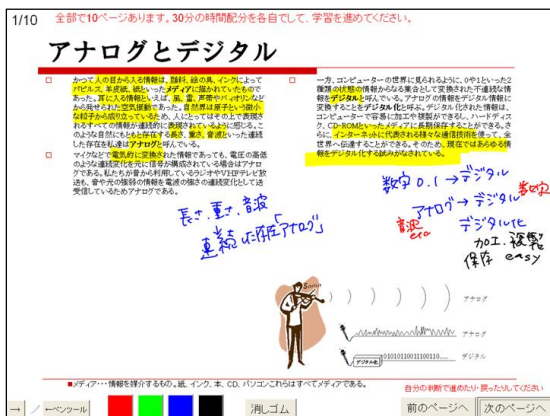 1/10
全部で10ページあります。30分の時間配分を各自でして、学習を進めてください。
アナログとデジタル
かつて人の目から入る情報は、顔料、絵の具、インクによって
パピルス、羊皮紙、紙といったメディアに描かれていたもので
あった。耳に入る情報といえば、風、雷、声帯やバイオリンなど
から発せられた空気振動であった。自然界は原子という微小
な粒子から成り立っているため、人にとってはその上で表現さ
れるすべての情報が連続的に表現されているように感じる。こ
のような自然にもともと存在する長さ、重さ、音波といった連続
した存在を私達はアナログと呼んでいる。
マイクなどで電気的に変換された情報であっても、電圧の高低
のような連続変化を元に信号が構成されている場合はアナロ
グである。私たちが昔から利用しているラジオやVHFテレビ放
送も、音や光の強弱の情報を電波の強さの連続変化として送
受信しているためアナログである。
一方、コンピューターの世界に見られるように、0や1といった2
種類の状態の情報からなる集合として変換された不連続な情
報をデジタルと呼んでいる。アナログの情報をデジタル情報に
変換することをデジタル化と呼ぶ。デジタル化された情報は、
コンピューターで容易に加工や複製ができるし、ハードディス
ク、CD-ROMといったメディアに長期保存することができる。さ
らに、インターネットに代表される様々な通信技術を使って、全
世界へ伝達することができる。そのため、現在ではあらゆる情
報をデジタル化する試みがなされている。
長さ、重さ、音波
連続した存在「アナログ」
数字 0.1 → デジタル
アナログ → デジタル 数字
音波 etc
デジタル化
加工、複製
保存 easy
アナログ
アナログ
デジタル化
01010110011100110....
デジタル
■メディア・・・情報を媒介するもの。紙、インク、本、CD、パソコンこれらはすべてメディアである。
自分の判断で進めたり・戻ったりしてください
→
←ペンツール
消しゴム
前のページへ
次のページへ